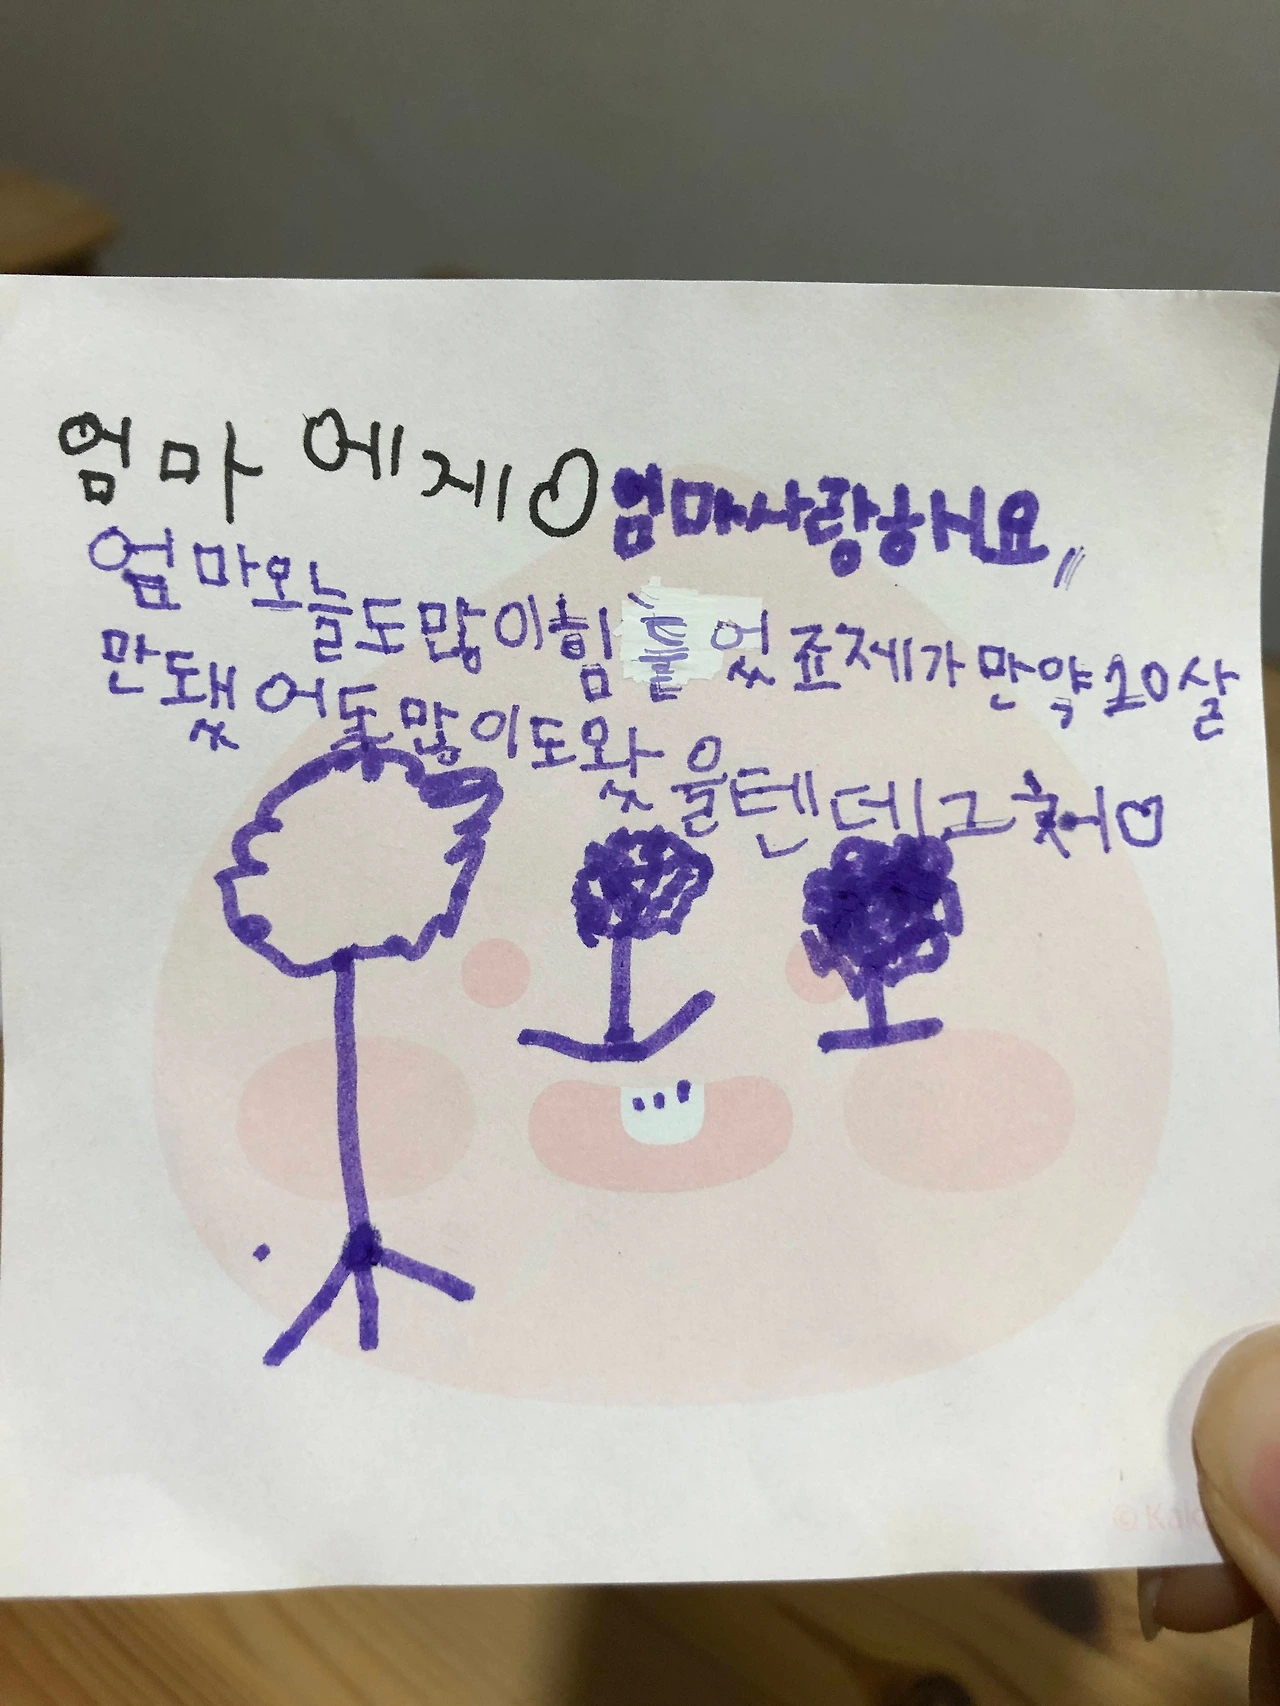 엄마 에제♡ 엄마사랑해요,,
엄마오늘도많이힘들었죠제가만약10살
만됐어도많이도왔을텐데